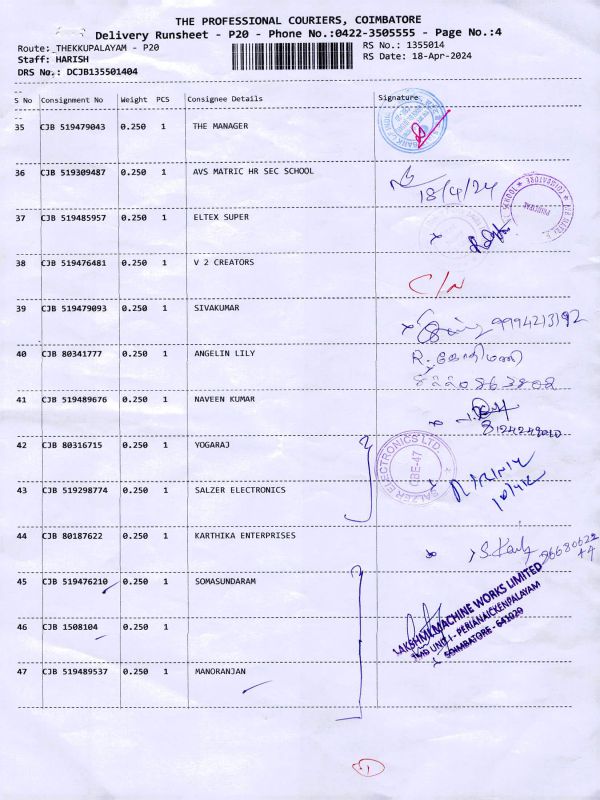 THE PROFESSIONAL COURIERS, COIMBATORE
Delivery Runsheet - P20 - Phone No.:0422-3505555 - Page No.:4
Route: THEKKUPALAYAM - P20
RS No.: 1355014
Staff: HARISH
RS Date: 18-Apr-2024
DRS No.: DCJB135501404
S No Consignment No Weight PCS Consignee Details Signature
35 CJB 519479043 0.250 1 THE MANAGER
36 CJB 519309487 0.250 1 AVS MATRIC HR SEC SCHOOL
18/4/24
PRINCIPAL
37 CJB 519485957 0.250 1 ELTEX SUPER
38 CJB 519476481 0.250 1 V 2 CREATORS
C/N
39 CJB 519479093 0.250 1 SIVAKUMAR
9994213192
40 CJB 80341777 0.250 1 ANGELIN LILY
R. கோதிமணி
41 CJB 519489676 0.250 1 NAVEEN KUMAR
42 CJB 80316715 0.250 1 YOGARAJ
SALZER ELECTRONICS LTD.
CBE-47
43 CJB 519298774 0.250 1 SALZER ELECTRONICS
44 CJB 80187622 0.250 1 KARTHIKA ENTERPRISES
45 CJB 519476210 0.250 1 SOMASUNDARAM
LAKSHMI MACHINE WORKS LIMITED
UNIT I - PERIANAICKENPALAYAM
COIMBATORE - 641020
46 CJB 1508104 0.250 1
47 CJB 519489537 0.250 1 MANORANJAN
1